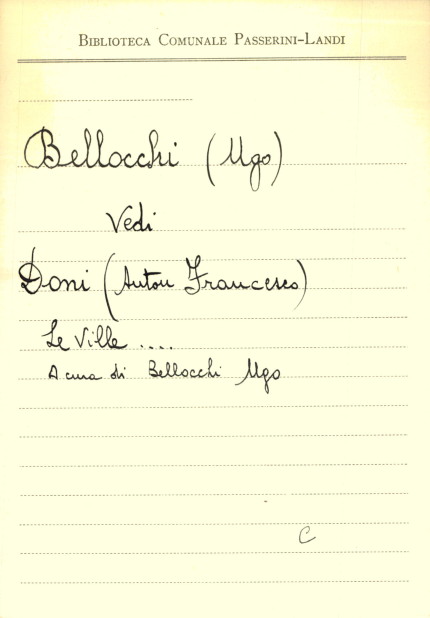 BIBLIOTECA COMUNALE PASSERINI-LANDI
Bellocchi (Ugo)
Vedi
Doni (Anton Francesco)
Le Ville ....
A cura di Bellocchi Ugo
C